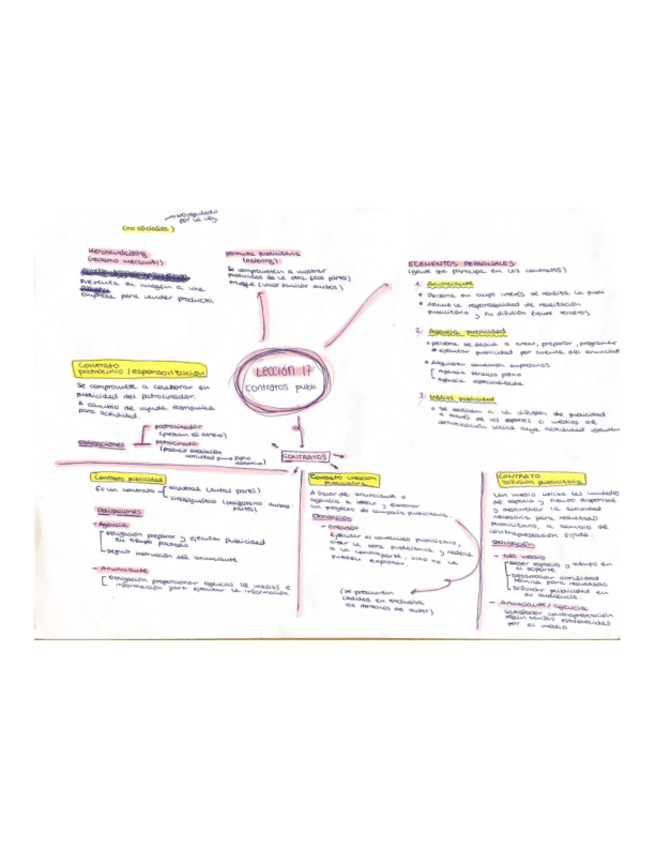 → no regulado
por la ley.
(no oficiales)
Merchandising
(reclamo mercantil)
Presenta su imagen a una
empresa para vender producto.
permuta publicitaria
(bartering)
Se comprometen a mostrar
publicidad de la otra (dos partes)
ELEMENTOS PERSONALES
(gente que participa en los contratos)
1. Anunciante
• Persona en cuyo interés se realiza la publi
• Asume la responsabilidad de
publicitaria y su difusión frente terceros
2. Agencia publicidad
• persona se dedica a crear, preparar, programar
• ejecutar publicidad por cuenta del anunciante
• Adquieren condición empresarios
Agencia servicio pleno
Agencia especializada
3. Medios publicidad
• Se dedican a la difusión de publicidad
a través de los soportes o medios de
comunicación social cuya actividad
Lección 17
contratos publi
Contrato
patrocinio / esponsorización
Se compromete a colaborar en
publicidad del patrocinador.
A cambio de ayuda económica
para actividad.
Obligaciones
patrocinador
patrocinado
CONTRATOS
Contrato publicidad
Es un contrato
bilateral (ambas partes)
Obligaciones
- Agencia
obligación preparar y ejecutar publicidad
en tiempo pactado
Seguir instrucción del anunciante
- Anunciante
Obligación proporcionar agencias los medios e
información para ejecutar la información
Contrato creación
publicitaria
A favor de anunciante o
agencia a idear y elaborar
un proyecto de campaña publicitaria.
Obligación
- Creador
Ejecutar el contenido publicitario,
crear la obra publicitaria y cederla
a la contraparte, sino no la
pueden explotar.
(Se presumen
cedidos en exclusiva
los derechos de autor)
CONTRATO
Difusión publicitaria
Un medio utiliza las unidades
de espacio y tiempo disponible
y desarrollar la actividad
necesaria para resultado
publicitario, a cambio de
contraprestación fijada.
Obligación
- Del medio
ceder espacio y tiempo en
el soporte
Desarrollar actividad
técnica para resultado
Difundir publicidad en
su audiencia
- Anunciante / agencia
Satisfacer contraprestación
según tarifas establecidas
por el medio.